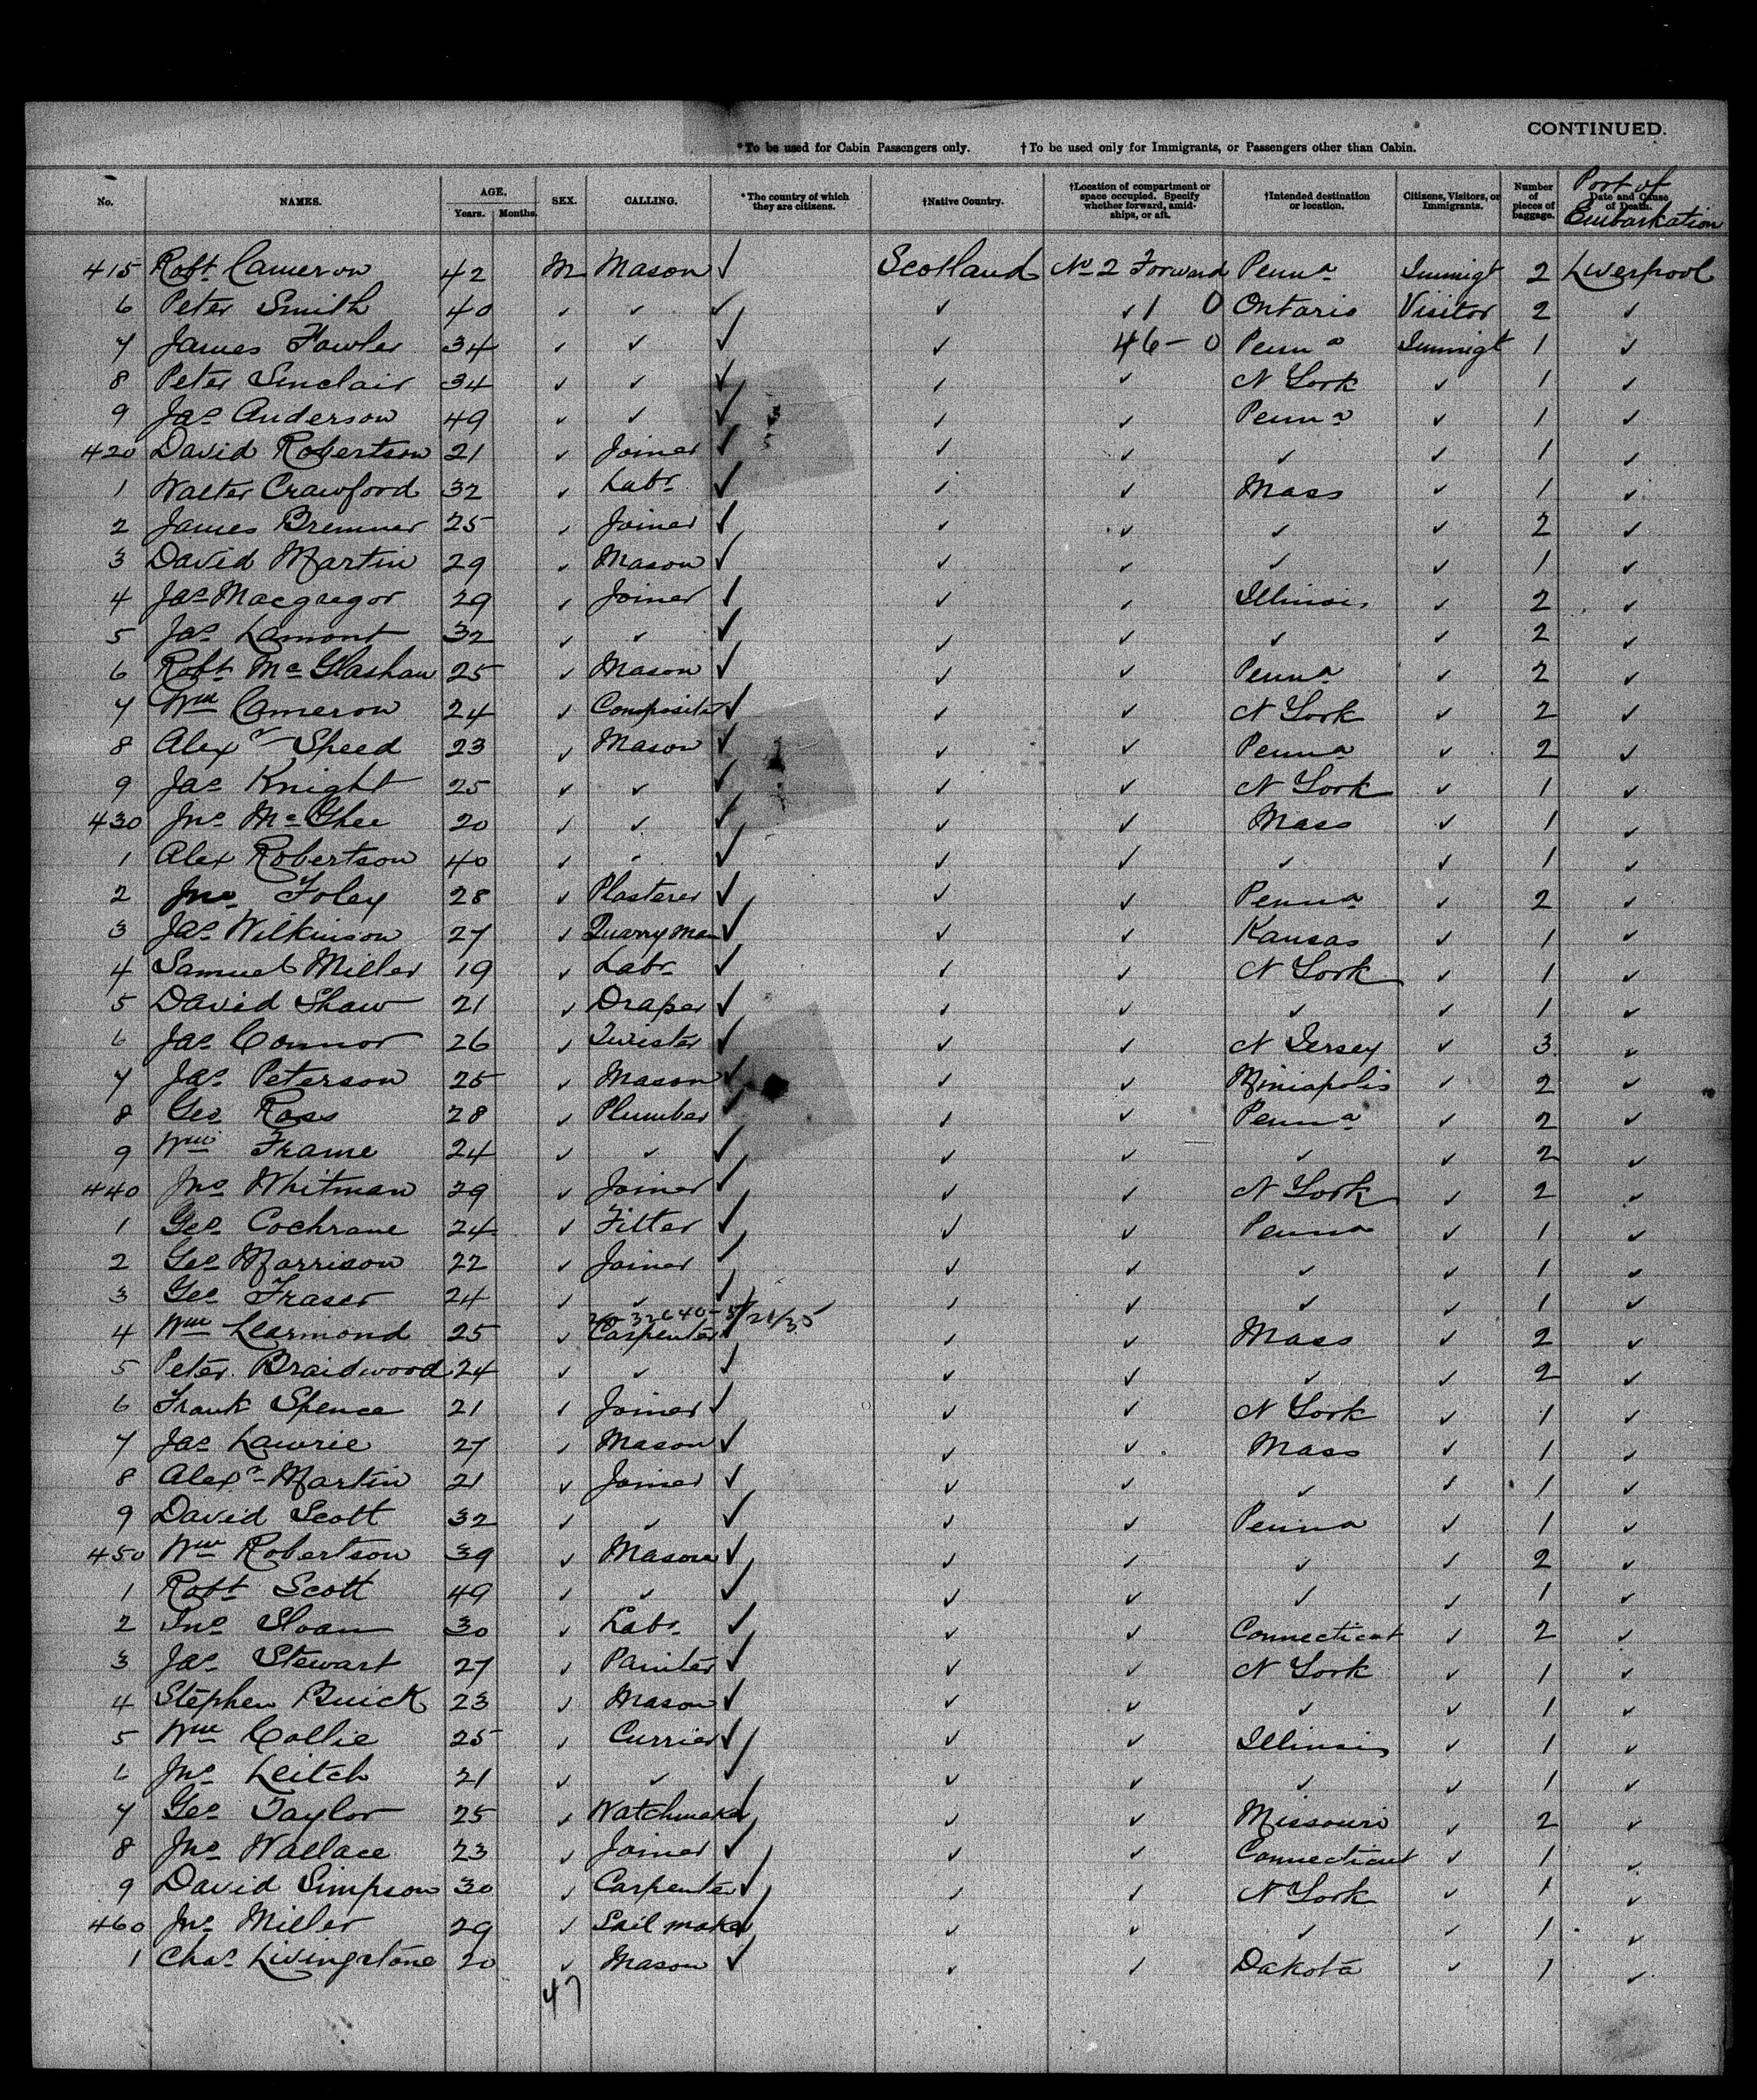 CONTINUED.
*To be used for Cabin Passengers only. †To be used only for Immigrants, or Passengers other than Cabin.
No. NAMES. AGE. Years. Months. SEX. CALLING. *The country of which they are citizens. †Native Country. †Location of compartment or space occupied. Specify whether forward, amidships, or aft. †Intended destination or location. Citizens, Visitors, or Immigrants. Number of pieces of baggage. Date and Cause of Death. Port of Embarkation
415 Robt Cameron 42 M Mason ✓ Scotland No 2 Forward Penna Immigt 2 Liverpool
6 Peter Smith 40 ✓ ✓ ✓ ✓ ✓ 1 0 Ontario Visitor 2 ✓
7 James Fowler 34 ✓ ✓ ✓ ✓ 46-0 Penna Immigt 1 ✓
8 Peter Sinclair 34 ✓ ✓ ✓ ✓ ✓ N York ✓ 1 ✓
9 Jas Anderson 49 ✓ ✓ ✓ ✓ ✓ Penna ✓ 1 ✓
420 David Robertson 21 ✓ Joiner ✓ ✓ ✓ ✓ ✓ 1 ✓
1 Walter Crawford 32 ✓ Labr ✓ ✓ ✓ Mass ✓ 1 ✓
2 James Bremner 25 ✓ Joiner ✓ ✓ ✓ ✓ ✓ 2 ✓
3 David Martin 29 ✓ Mason ✓ ✓ ✓ ✓ ✓ 1 ✓
4 Jas Macgregor 29 ✓ Joiner ✓ ✓ ✓ Illinois ✓ 2 ✓
5 Jas Lamont 32 ✓ ✓ ✓ ✓ ✓ ✓ ✓ 2 ✓
6 Robt McGlashan 25 ✓ Mason ✓ ✓ ✓ Penna ✓ 2 ✓
7 Wm Cameron 24 ✓ Compositor ✓ ✓ ✓ N York ✓ 2 ✓
8 Alexr Speed 23 ✓ Mason ✓ ✓ ✓ Penna ✓ 2 ✓
9 Jas Knight 25 ✓ ✓ ✓ ✓ ✓ N York ✓ 1 ✓
430 Jno McGhee 20 ✓ ✓ ✓ ✓ ✓ Mass ✓ 1 ✓
1 Alex Robertson 40 ✓ ✓ ✓ ✓ ✓ ✓ ✓ 1 ✓
2 Jno Foley 28 ✓ Plasterer ✓ ✓ ✓ Penna ✓ 2 ✓
3 Jas Wilkinson 27 ✓ Quarryman ✓ ✓ ✓ Kansas ✓ 1 ✓
4 Samuel Miller 19 ✓ Labr ✓ ✓ ✓ N York ✓ 1 ✓
5 David Shaw 21 ✓ Draper ✓ ✓ ✓ ✓ ✓ 1 ✓
6 Jas Connor 26 ✓ Twister ✓ ✓ ✓ N Jersey ✓ 3 ✓
7 Jas Peterson 25 ✓ Mason ✓ ✓ ✓ Miniapolis ✓ 2 ✓
8 Geo Ross 28 ✓ Plumber ✓ ✓ ✓ Penna ✓ 2 ✓
9 Wm Frame 24 ✓ ✓ ✓ ✓ ✓ ✓ ✓ 2 ✓
440 Jno Whitman 29 ✓ Joiner ✓ ✓ ✓ N York ✓ 2 ✓
1 Geo Cochrane 24 ✓ Fitter ✓ ✓ ✓ Penna ✓ 1 ✓
2 Geo Morrison 22 ✓ Joiner ✓ ✓ ✓ ✓ ✓ 1 ✓
3 Geo Fraser 24 ✓ ✓ ✓ ✓ ✓ ✓ ✓ 1 ✓
20-32640-5/21/35
4 Wm Learmond 25 ✓ Carpenter ✓ ✓ ✓ Mass ✓ 2 ✓
5 Peter Braidwood 24 ✓ ✓ ✓ ✓ ✓ ✓ ✓ 2 ✓
6 Frank Spence 21 ✓ Joiner ✓ ✓ ✓ N York ✓ 1 ✓
7 Jas Lawrie 27 ✓ Mason ✓ ✓ ✓ Mass ✓ 1 ✓
8 Alexr Martin 21 ✓ Joiner ✓ ✓ ✓ ✓ ✓ 1 ✓
9 David Scott 32 ✓ ✓ ✓ ✓ ✓ Penna ✓ 1 ✓
450 Wm Robertson 39 ✓ Mason ✓ ✓ ✓ ✓ ✓ 2 ✓
1 Robt Scott 49 ✓ ✓ ✓ ✓ ✓ ✓ ✓ 1 ✓
2 Jno Sloan 30 ✓ Labr ✓ ✓ ✓ Connecticut ✓ 2 ✓
3 Jas Stewart 27 ✓ Painter ✓ ✓ ✓ N York ✓ 1 ✓
4 Stephen Buick 23 ✓ Mason ✓ ✓ ✓ ✓ ✓ 1 ✓
5 Wm Collie 25 ✓ Currier ✓ ✓ ✓ Illinois ✓ 1 ✓
6 Jno Leitch 21 ✓ ✓ ✓ ✓ ✓ ✓ ✓ 1 ✓
7 Geo Taylor 25 ✓ Watchmaker ✓ ✓ ✓ Missouri ✓ 2 ✓
8 Jno Wallace 23 ✓ Joiner ✓ ✓ ✓ Connecticut ✓ 1 ✓
9 David Simpson 30 ✓ Carpenter ✓ ✓ ✓ N York ✓ 1 ✓
460 Jno Miller 29 ✓ Sail maker ✓ ✓ ✓ ✓ ✓ 1 ✓
1 Chas Livingstone 20 ✓ Mason ✓ ✓ ✓ Dakota ✓ 1 ✓
47